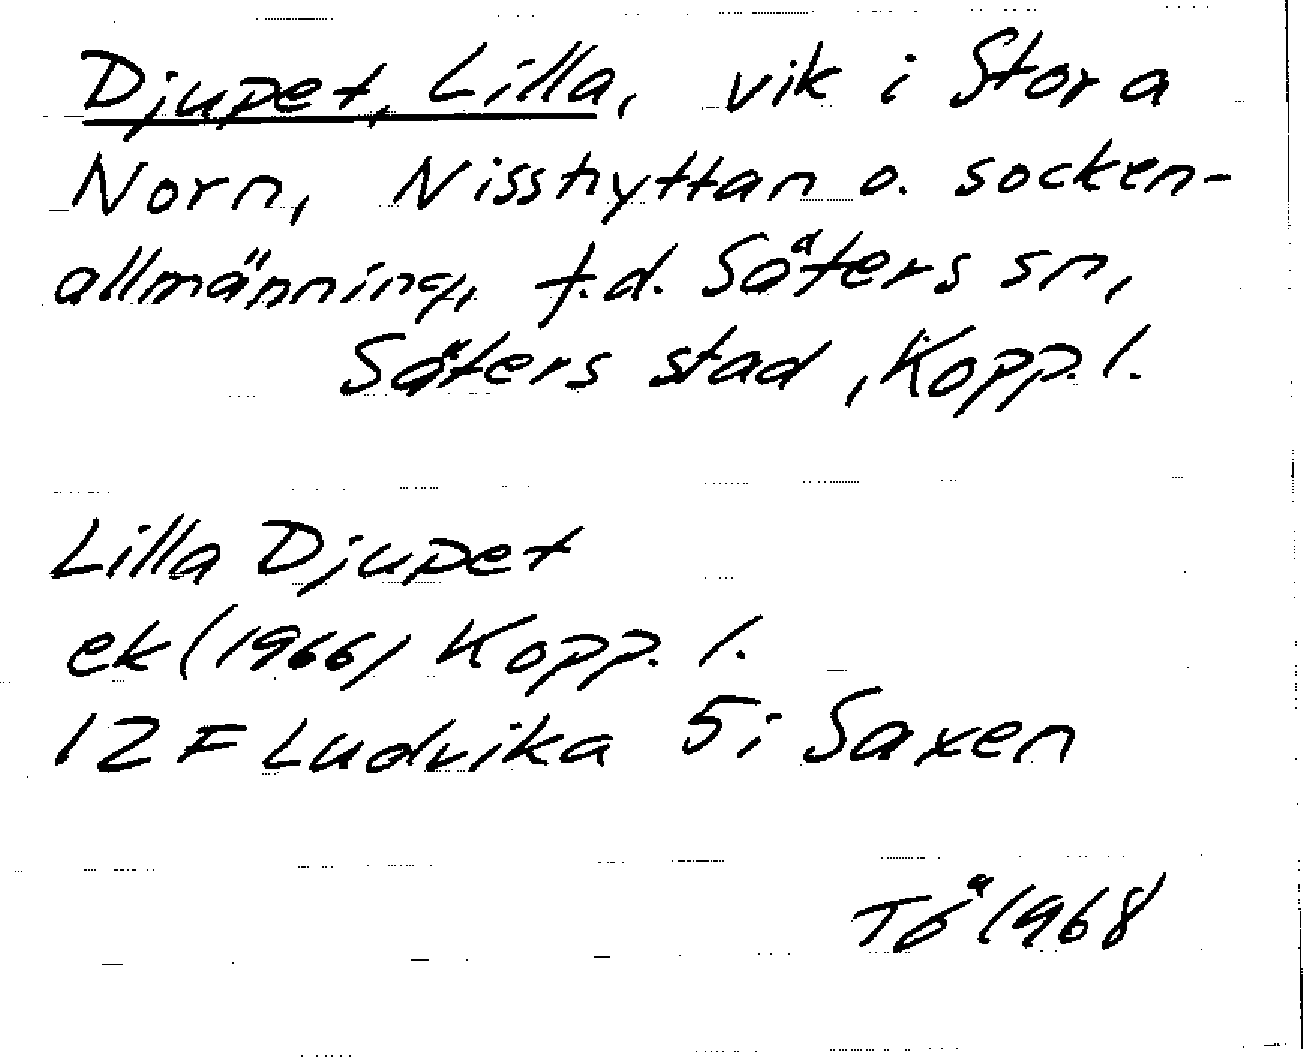 Djupet, Lilla, vik i Stora
Norn, Nisshyttan o. socken-
allmänning, f.d. Säters sn,
Säters stad, Kopp. l.
Lilla Djupet
ek (1966) Kopp. l.
12 F Ludvika 5i Saxen
Tö 1968